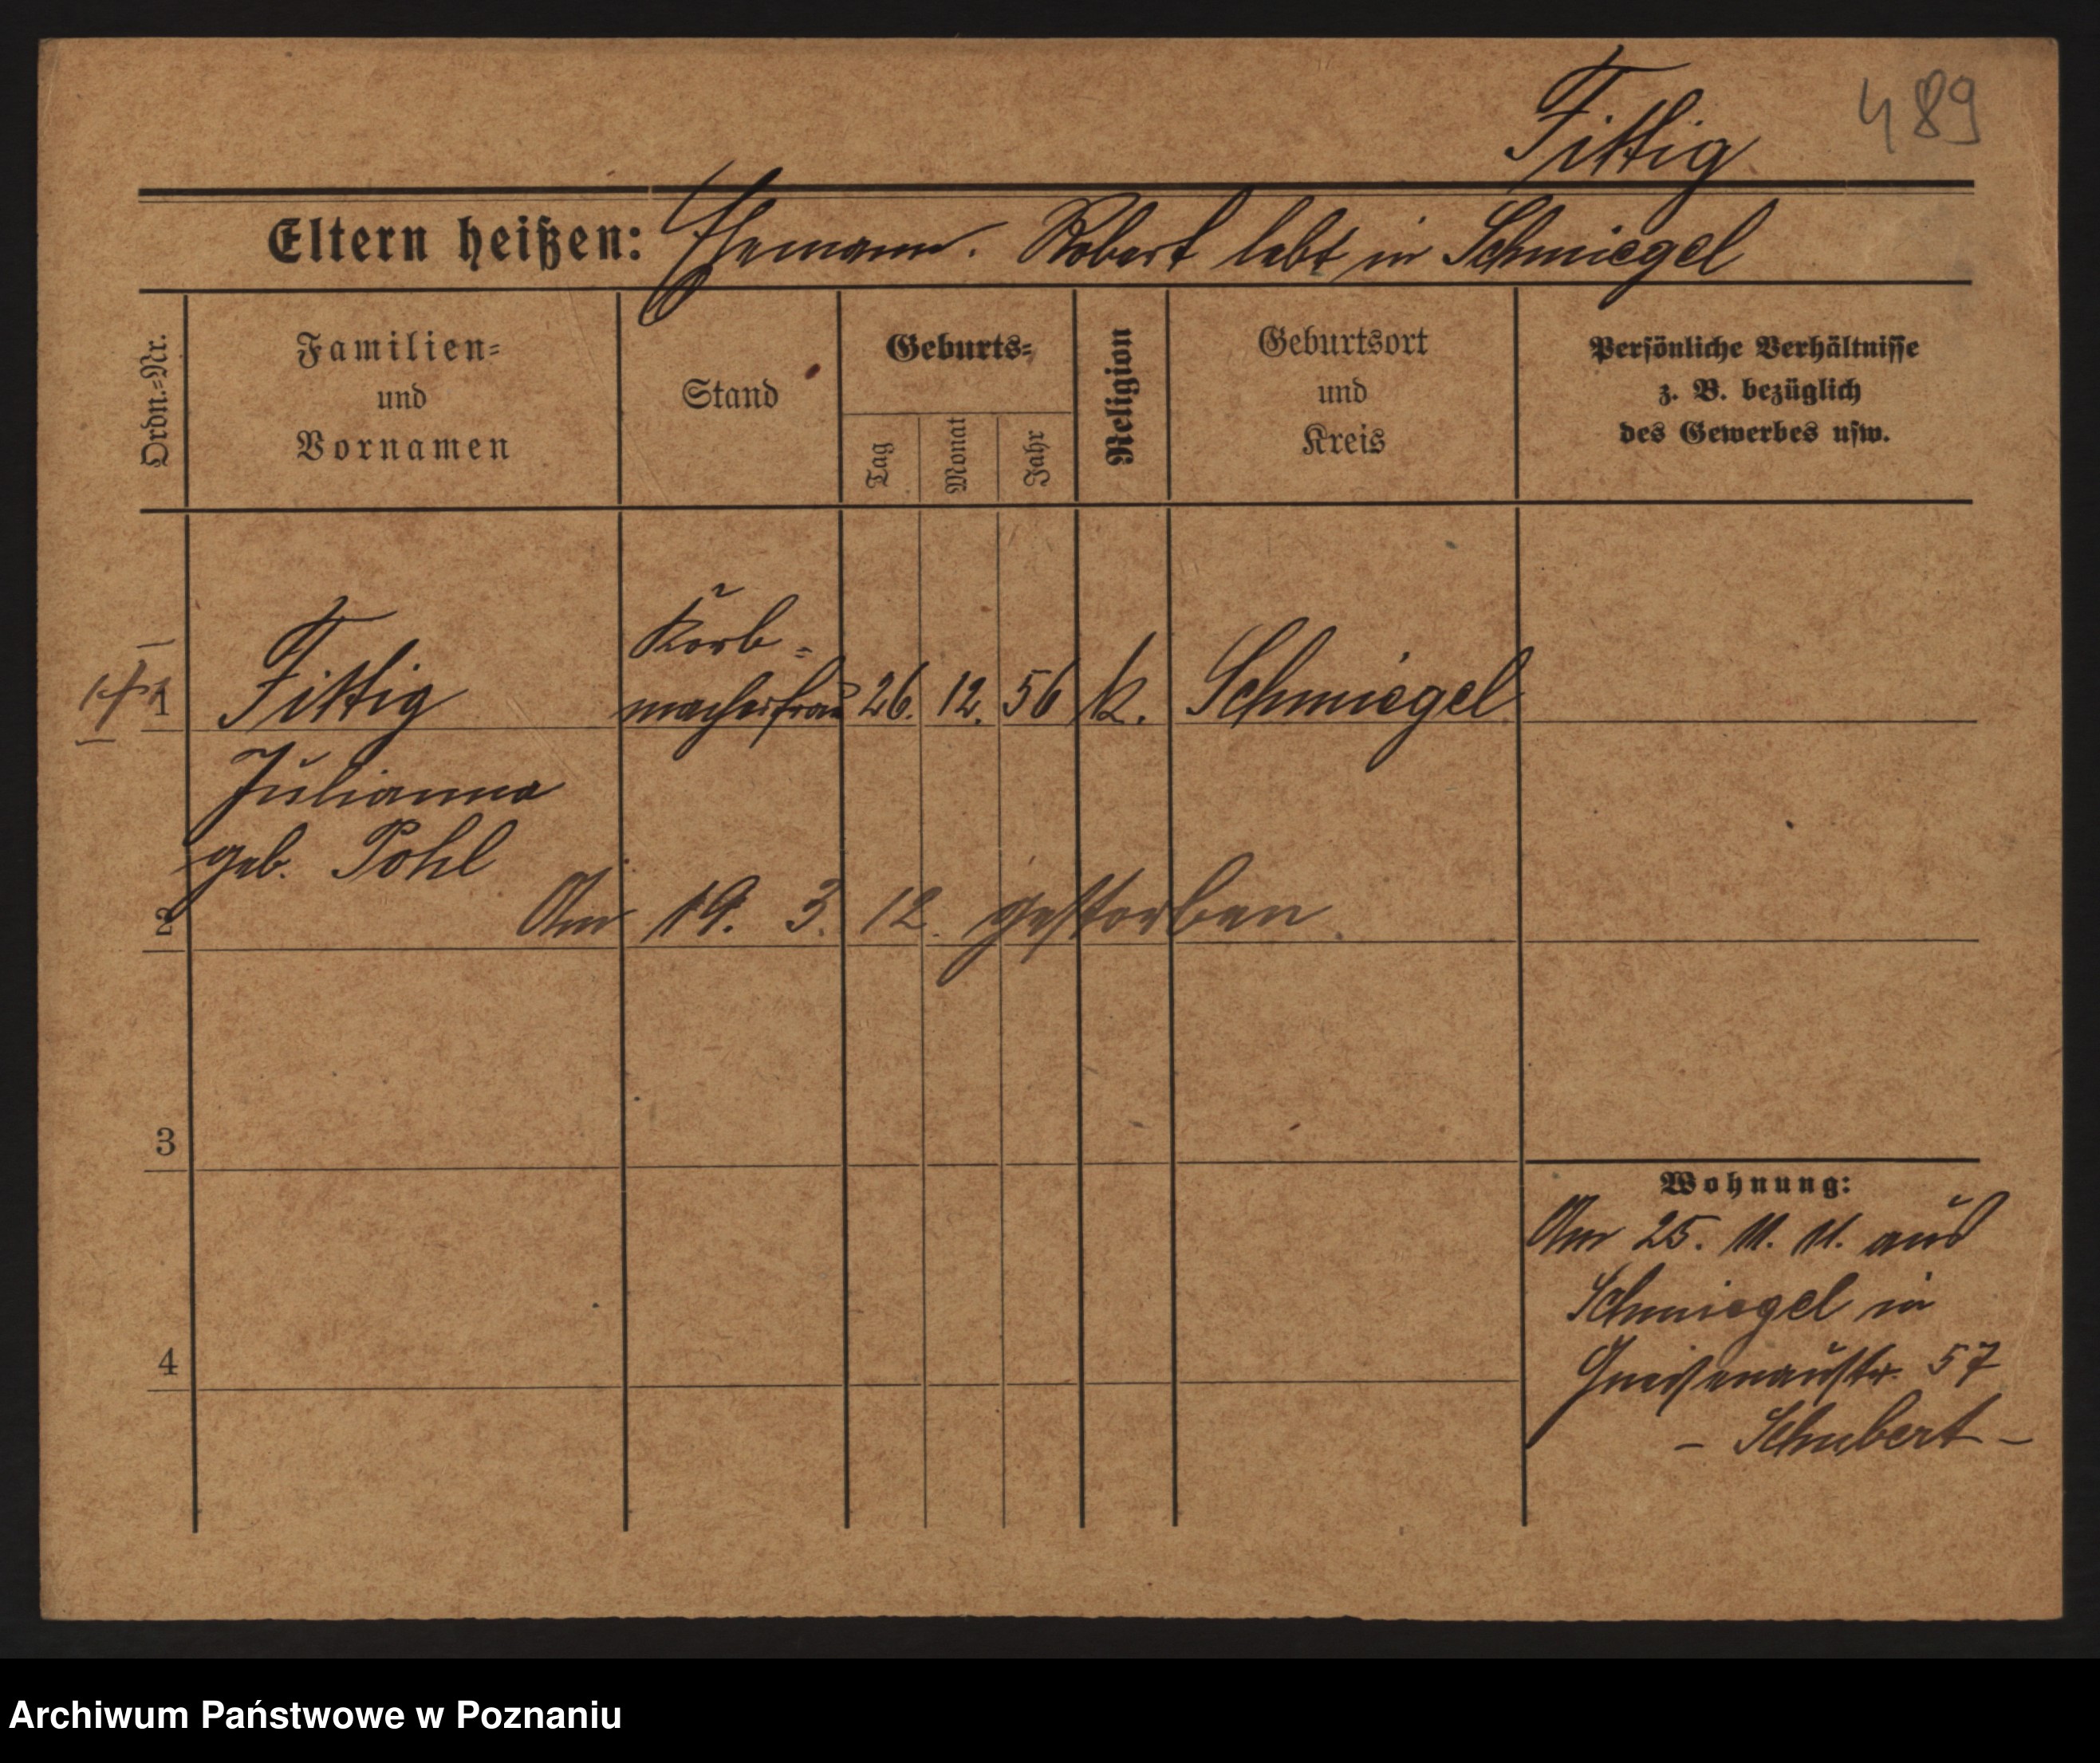 Fittig 489
Eltern heißen: Ehemann. Robert lebt in Schmiegel
Ordn.=Nr.
Familien=
und
Vornamen
Stand
Geburts=
Tag
Monat
Jahr
Religion
Geburtsort
und
Kreis
Persönliche Verhältnisse
z. B. bezüglich
des Gewerbes usw.
Korb=
1 Fittig macherfrau 26. 12. 56 k. Schmiegel
Julianna
geb. Pohl
2 Am 19. 3. 12. gestorben.
3
Wohnung:
Am 25. 11. 11. aus
Schmiegel in
4 Gneisenaustr. 57
– Schubert –
Archiwum Państwowe w Poznaniu